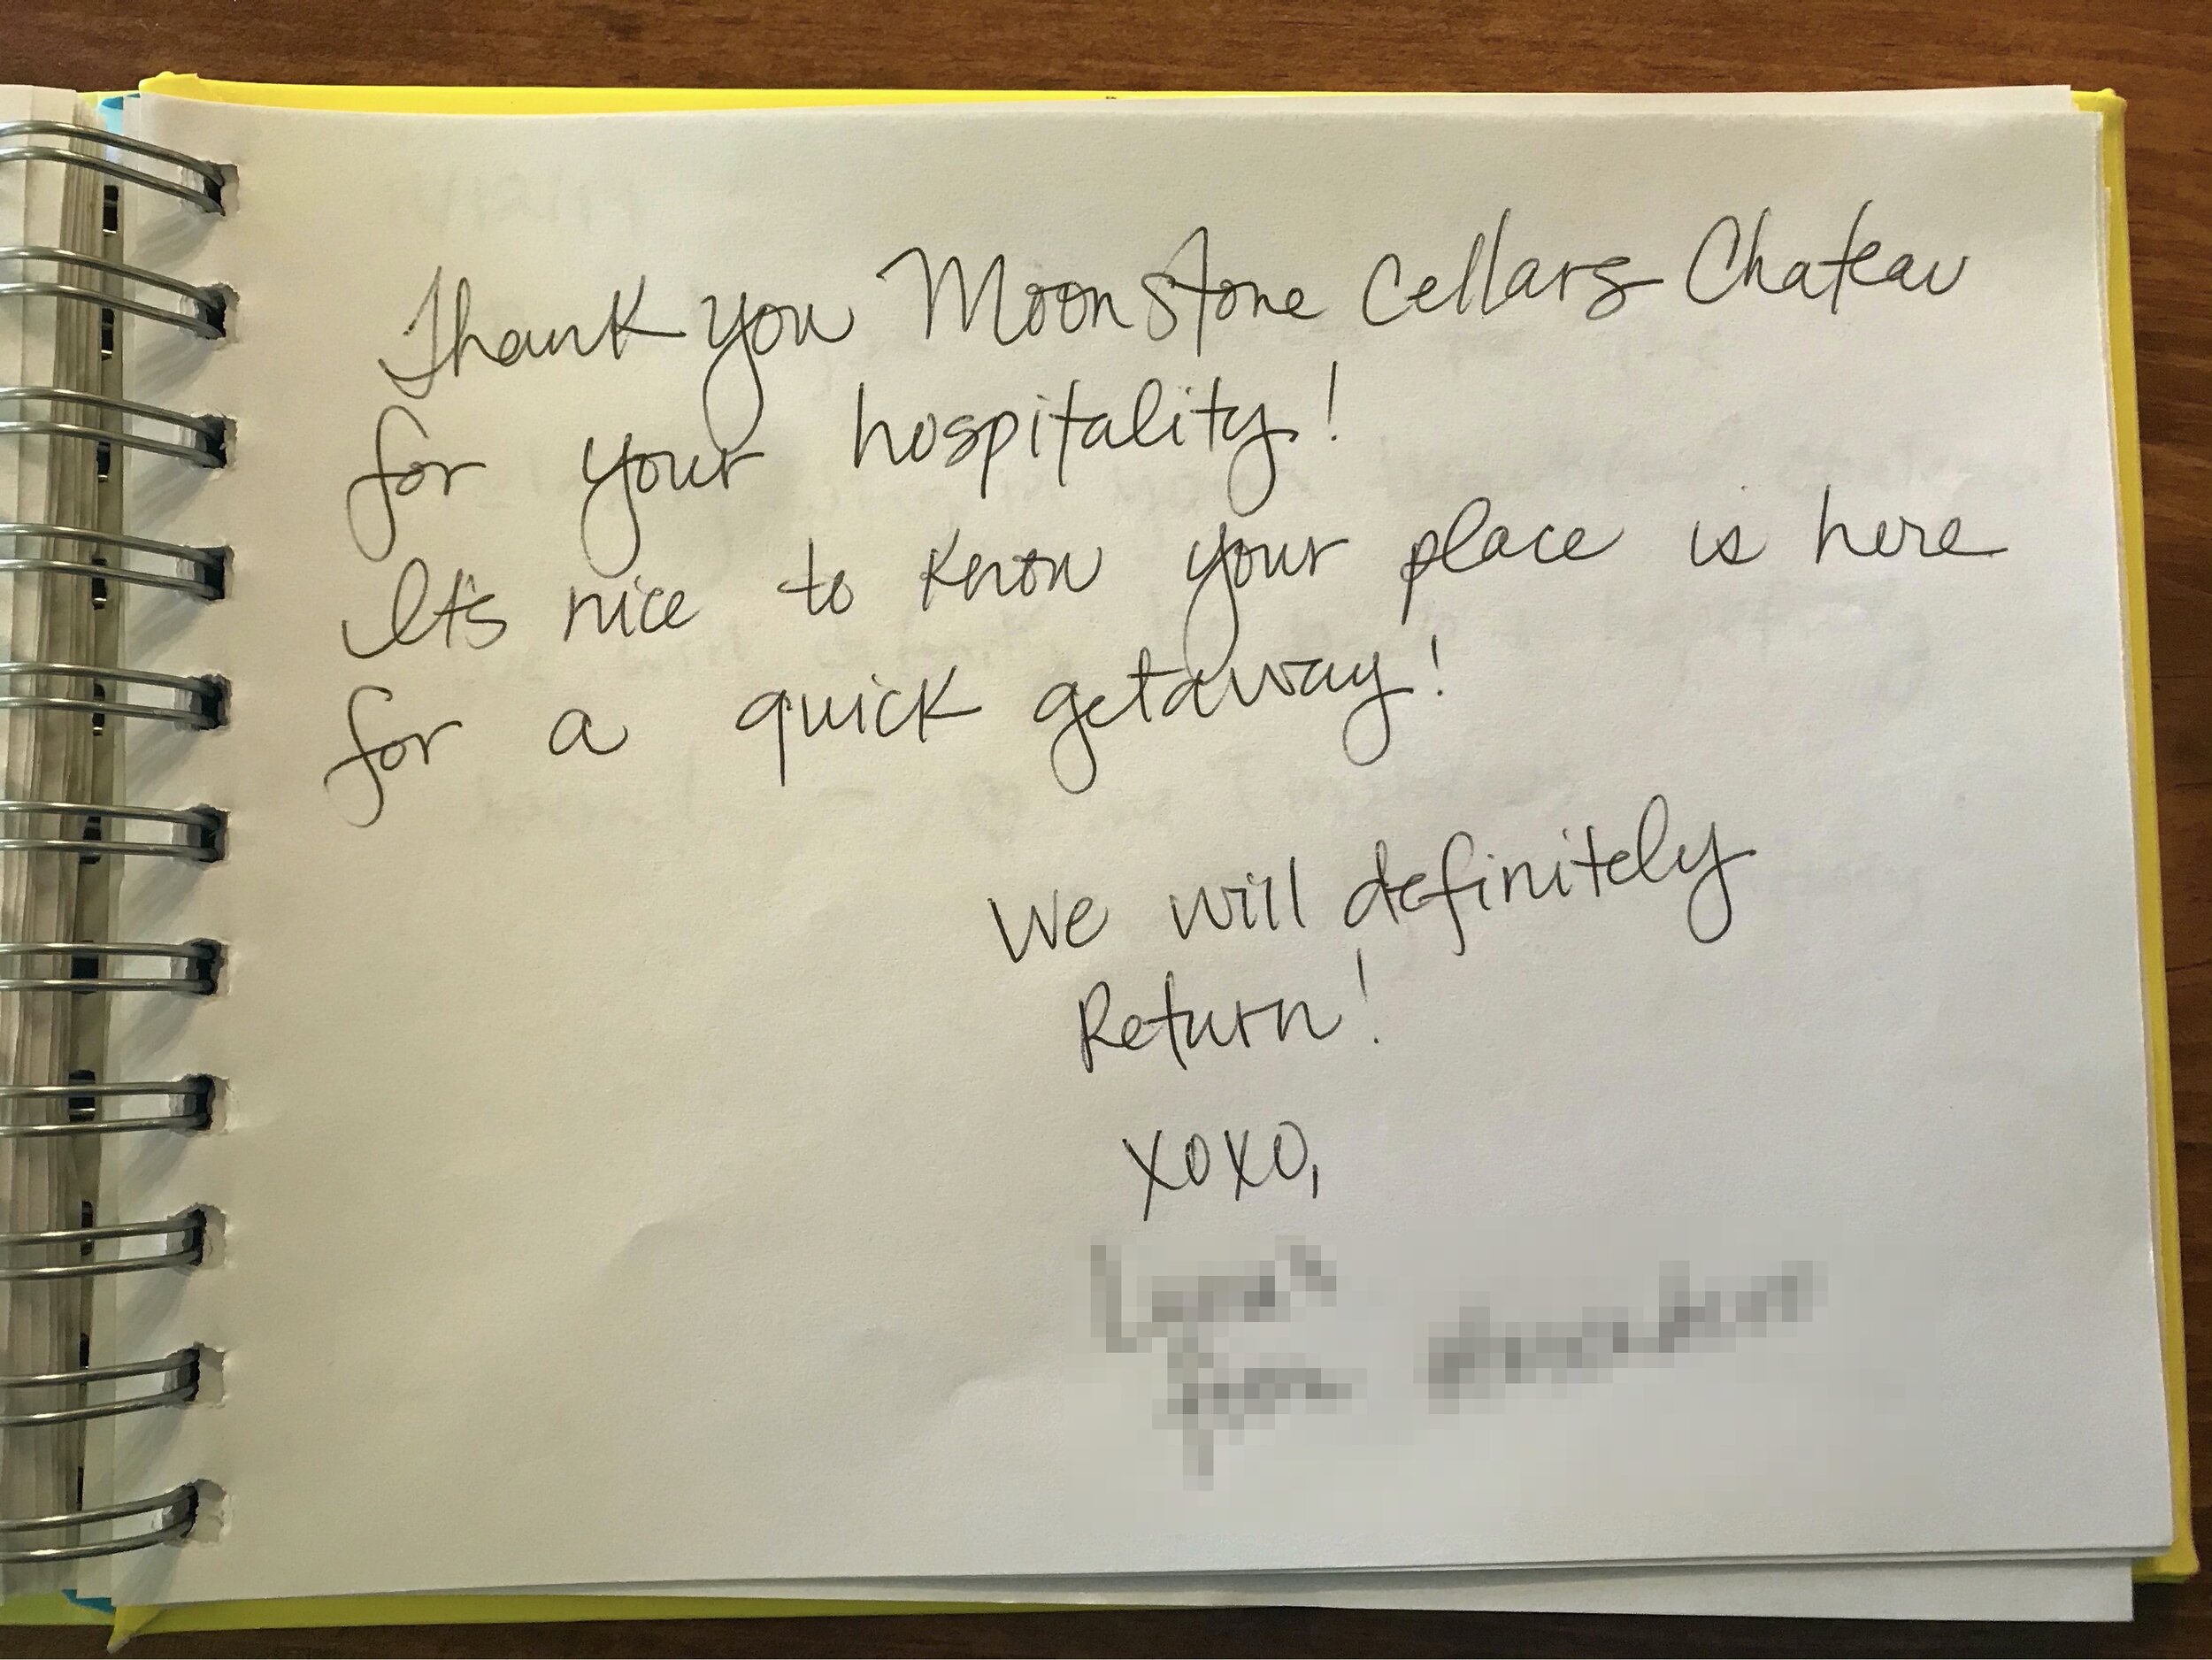 Thank you Moonstone Cellars Chateau
for your hospitality!
It's nice to know your place is here
for a quick getaway!
We will definitely
Return!
XOXO,